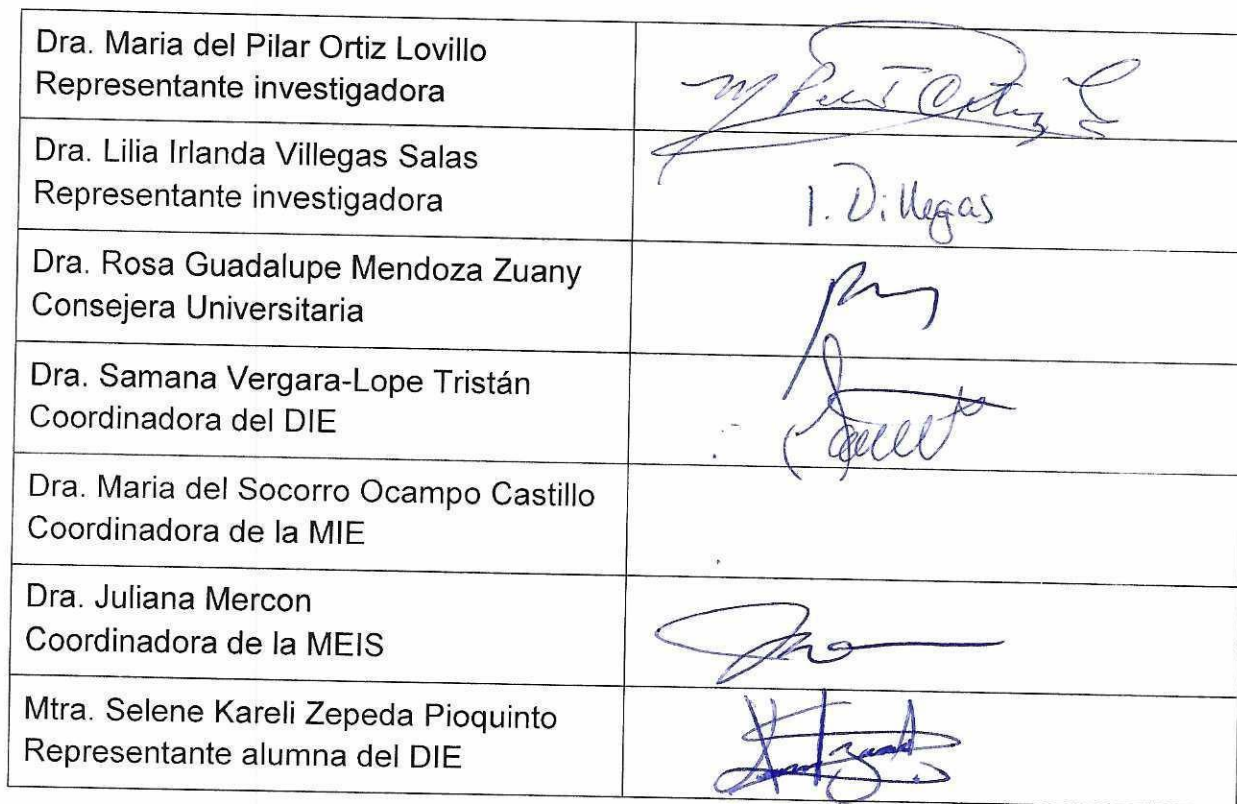 Dra. Maria del Pilar Ortiz Lovillo
Representante investigadora
Dra. Lilia Irlanda Villegas Salas
Representante investigadora
I. Villegas
Dra. Rosa Guadalupe Mendoza Zuany
Consejera Universitaria
Dra. Samana Vergara-Lope Tristán
Coordinadora del DIE
Dra. Maria del Socorro Ocampo Castillo
Coordinadora de la MIE
Dra. Juliana Mercon
Coordinadora de la MEIS
Mtra. Selene Kareli Zepeda Pioquinto
Representante alumna del DIE